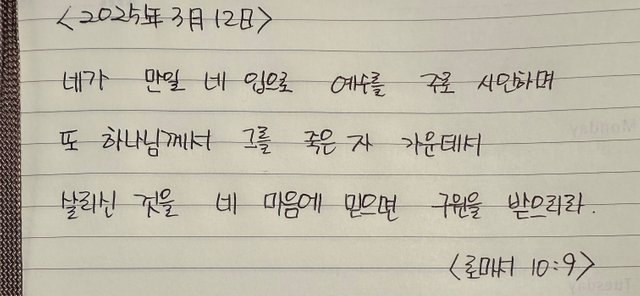 <2025年 3月 12日>
네가 만일 네 입으로 예수를 주로 시인하며
또 하나님께서 그를 죽은 자 가운데서
살리신 것을 네 마음에 믿으면 구원을 받으리라.
<로마서 10:9>
Monday
Tuesday